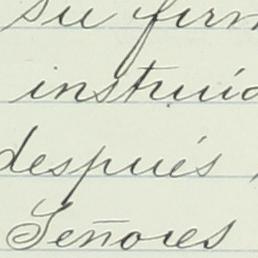 su firm
instruid
después
Señores